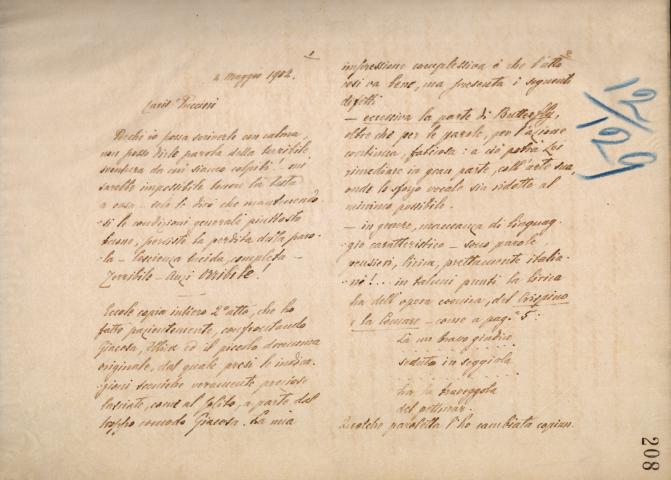 1
2 maggio 1902.
Caris. Puccini
Perchè io possa scrivere con calma,
non posso dirle parola della terribile
sventura da cui siamo colpiti! mi
sarebbe impossibile tenere la testa
a casa — solo le dirò che mantenendo-
si le condizioni generali piuttosto
buone, persiste la perdita della paro-
la — l'essenza lucida, completa —
Terribile — Anzi Orribile!
Eccole copia intiero 2º atto, che ho
fatto pazientemente, confrontando
Giacosa, Illica ed il piccolo dramma
originale, dal quale presi le indica-
zioni sceniche veramente preziose
lasciate, come al solito, a parte dal
troppo comodo Giacosa. La mia
2
impressione complessiva è che l'atto
così va bene, ma presenta i seguenti
difetti.
— eccessiva la parte di Butterfly,
oltre che per le parole, per l'azione
continua, faticosa: a ciò potrà Lei
rimediare in gran parte, coll'arte sua
onde lo sforzo vocale sia ridotto al
minimo possibile.
— in genere, mancanza di linguag-
gio caratteristico — sono parole
pensieri, lirica, prettamente italia-
ne!... in taluni punti la lirica
ha dell'opera comica, del Crispino
e la Comare — come a pag.ª 5:
Là un bravo giudice
seduto in seggiola
ha la
del
Qualche paroletta l'ho cambiata copian-
12/129
208